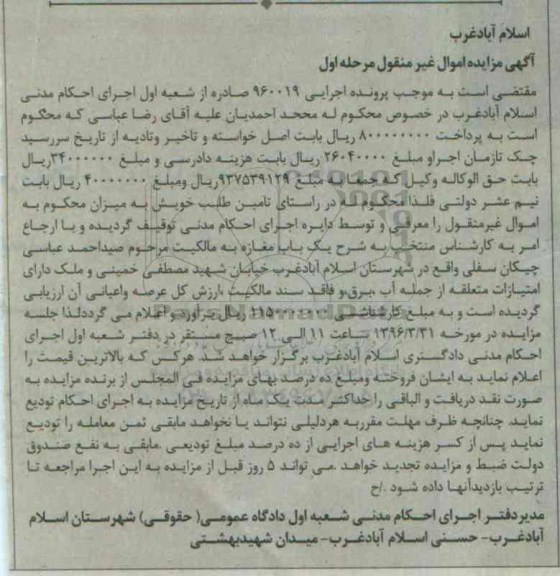 اسلام آبادغرب
آگهی مزایده اموال غیر منقول مرحله اول
مقتضی است به موجب پرونده اجرایی ۹۶۰۰۱۹ صادره از شعبه اول اجرای احکام مدنی
اسلام آبادغرب در خصوص محکوم له محمد احمدیان علیه آقای رضا عباسی که محکوم
است به پرداخت ۸۰۰۰۰۰۰۰۰ ریال بابت اصل خواسته و تاخیر وتادیه از تاریخ سررسید
چک تازمان اجراو مبلغ ۲۶۰۴۰۰۰۰ ریال بابت هزینه دادرسی و مبلغ ۳۴۰۰۰۰۰۰ریال
بابت حق الوکاله وکیل که جمعا به مبلغ ۹۳۷۵۳۹۱۲۹ریال ومبلغ ۴۰۰۰۰۰۰۰ ریال بابت
نیم عشر دولتی فلذا محکوم له در راستای تامین طلب خویش به میزان محکوم به
اموال غیرمنقول را معرفی و توسط دایره اجرای احکام مدنی توقیف گردیده و با ارجاع
امر به کارشناس منتخب به شرح یک باب مغازه به مالکیت مرحوم صیداحمد عباسی
چیکان سفلی واقع در شهرستان اسلام آبادغرب خیابان شهید مصطفی خمینی و ملک دارای
امتیازات متعلقه از جمله آب ،برق،و فاقد سند مالکیت ،ارزش کل عرصه واعیانی آن ارزیابی
گردیده است و به مبلغ کارشناسی ریال برآورد و اعلام می گرددلذا جلسه
مزایده در مورخه ۱۳۹۶/۳/۳۱ ساعت ۱۱ الی ۱۲ صبح مستقر در دفتر شعبه اول اجرای
احکام مدنی دادگستری اسلام آبادغرب برگزار خواهد شد. هرکس که بالاترین قیمت را
اعلام نماید به ایشان فروخته ومبلغ ده درصد بهای مزایده فی المجلس از برنده مزایده به
صورت نقد دریافت و الباقی را حداکثر مدت یک ماه از تاریخ مزایده به اجرای احکام تودیع
نماید. چنانچه ظرف مهلت مقرربه هردلیلی نتواند یا نخواهد مابقی ثمن معامله را تودیع
نماید پس از کسر هزینه های اجرایی از ده درصد مبلغ تودیعی ،مابقی به نفع صندوق
دولت ضبط و مزایده تجدید خواهد .می تواند ۵ روز قبل از مزایده به این اجرا مراجعه تا
ترتیب بازدیدآنها داده شود ./ح
مدیردفتر اجرای احکام مدنی شعبه اول دادگاه عمومی( حقوقی) شهرستان اسلام
آبادغرب- حسنی اسلام آبادغرب- میدان شهیدبهشتی